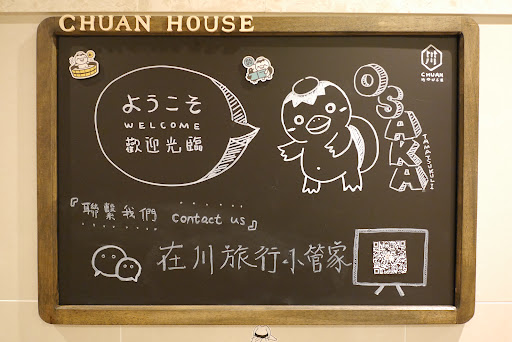 CHUAN HOUSE
CHUAN
HOUSE
ようこそ
WELCOME
歡迎光臨
OSAKA
TAMATSUKURI
『聯繫我們 contact us』
在川旅行小管家